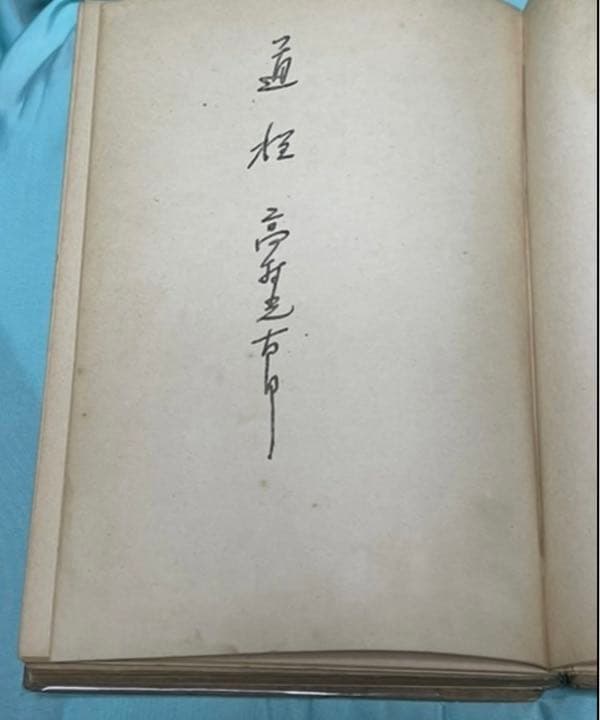 道程 高村光太郎